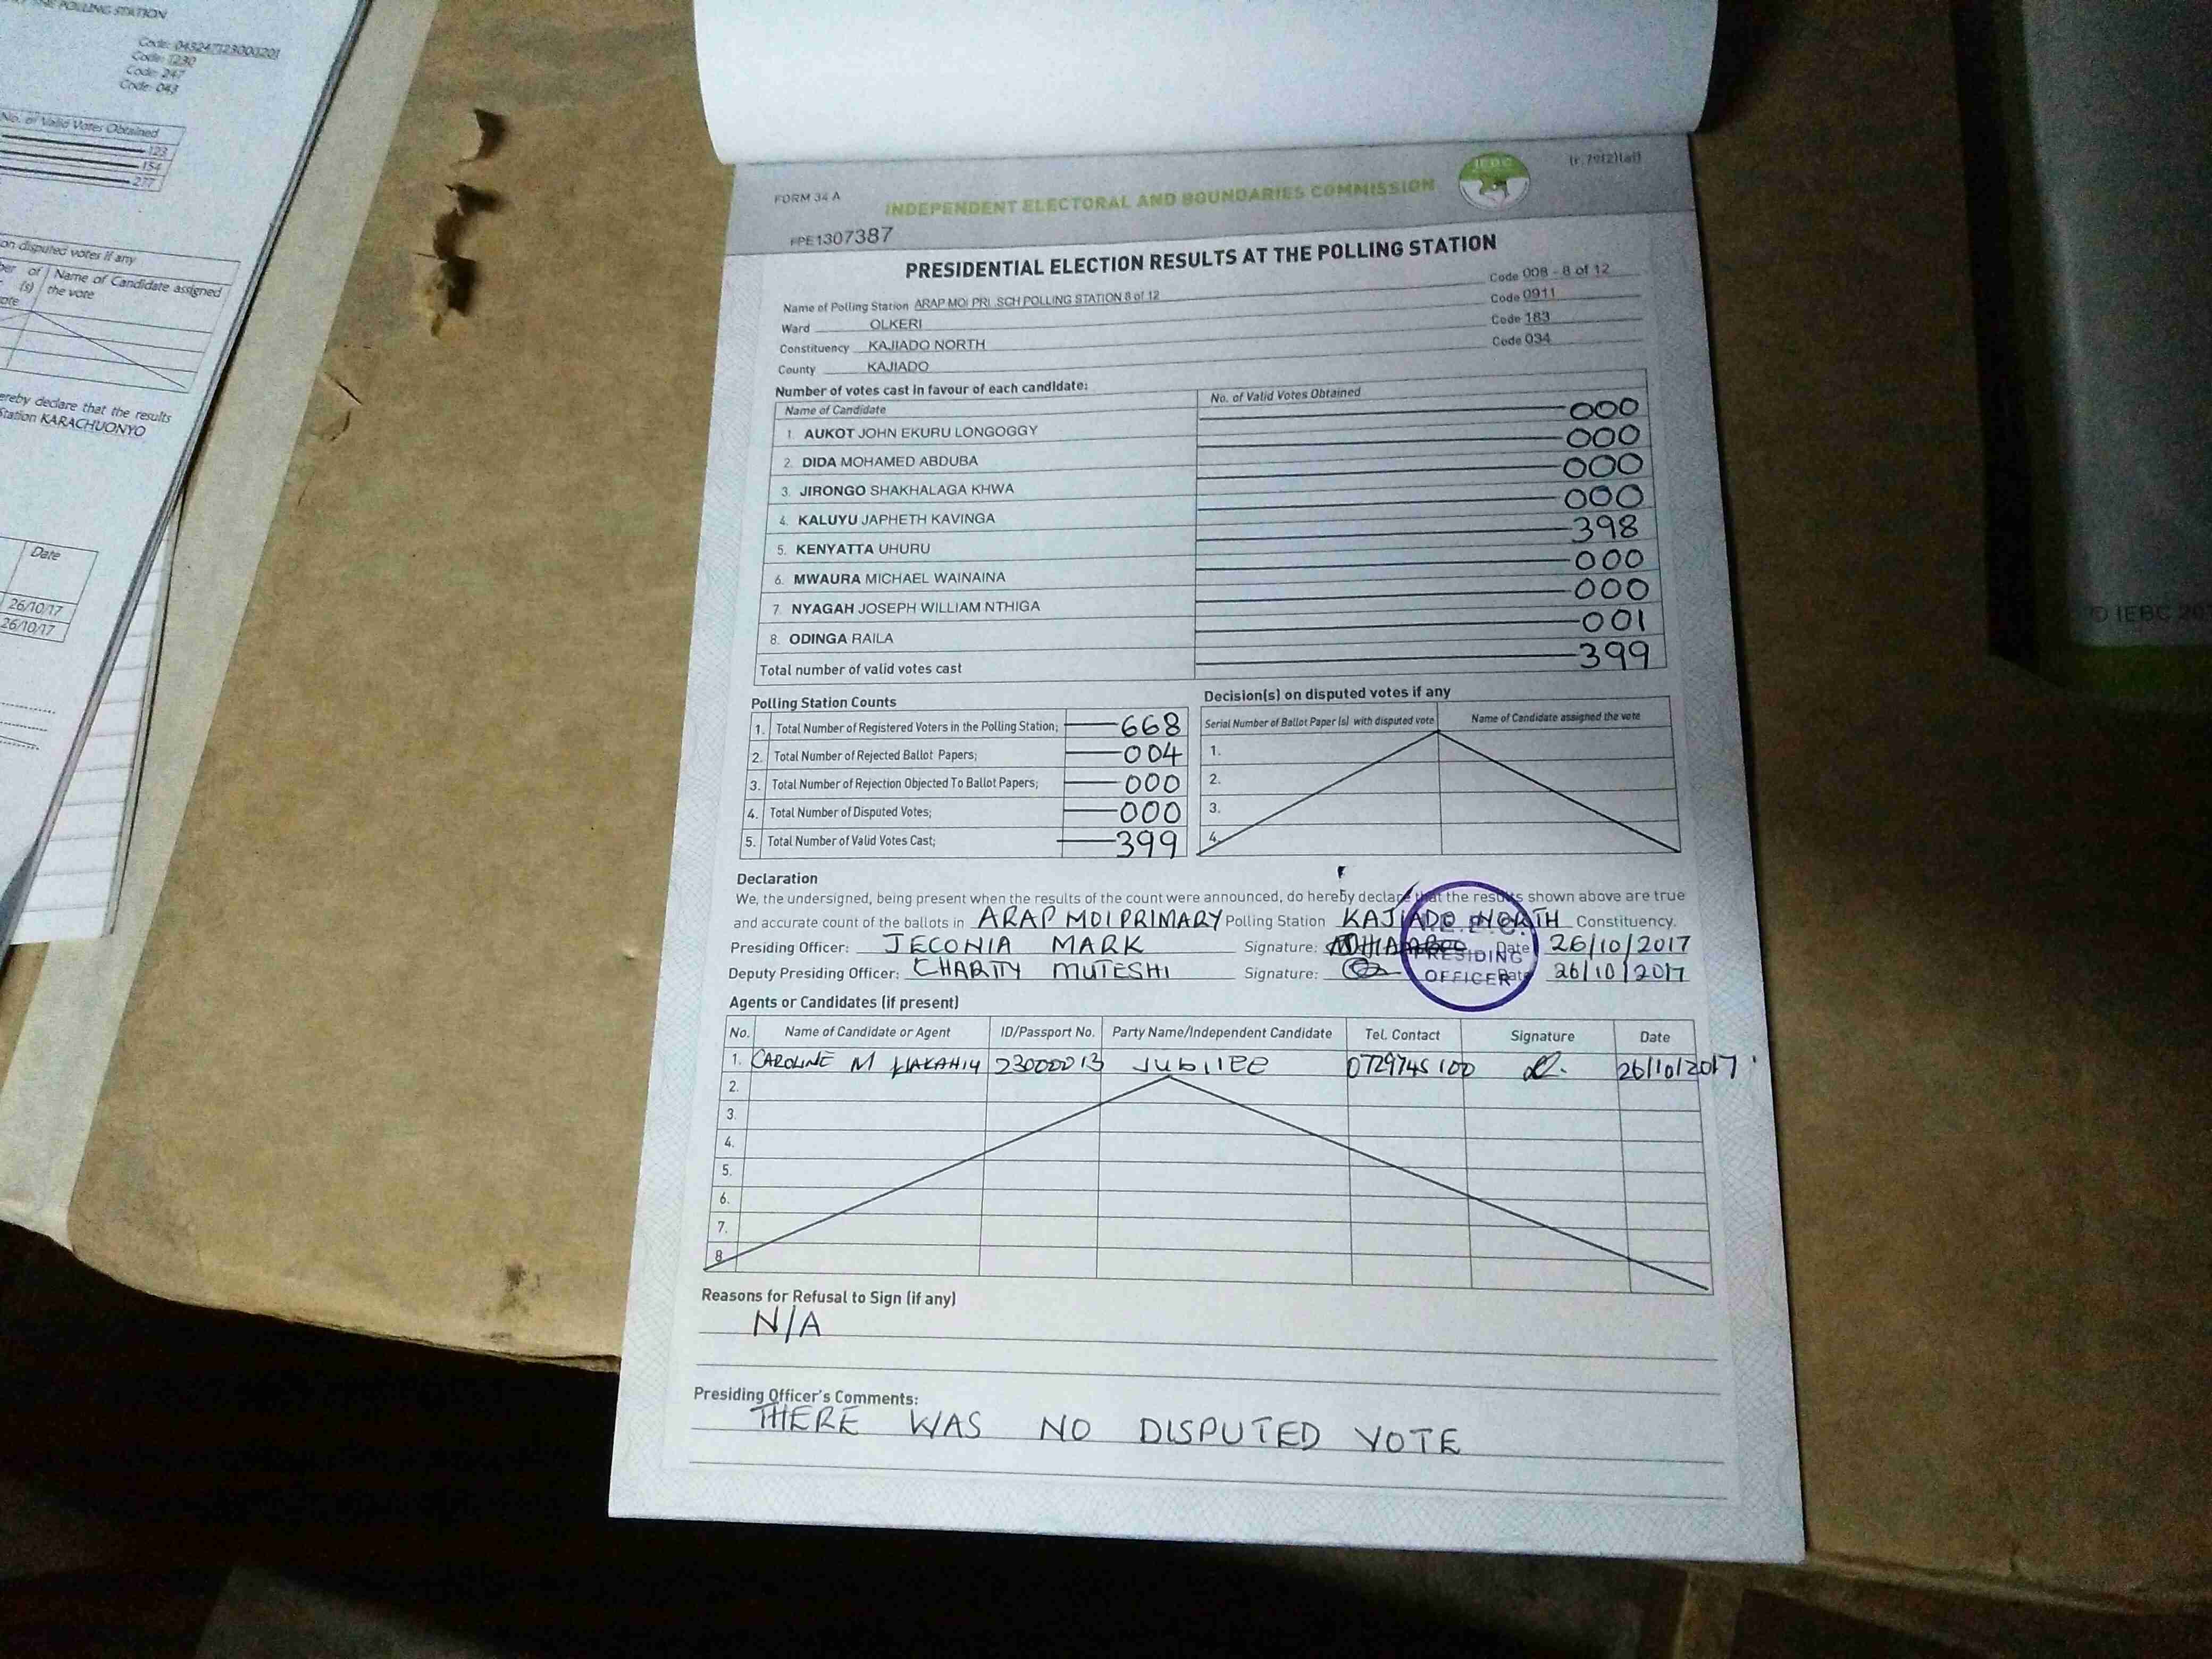 THE POLLING STATION
Code: 043247123000201
Code: 1230
Code: 247
Code: 043
No. of Valid Votes Obtained
123
154
277
on disputed votes if any
Name of Candidate assigned
the vote
ereby declare that the results
Station KARACHUONYO
Date
26/10/17
26/10/17
FORM 34 A
INDEPENDENT ELECTORAL AND BOUNDARIES COMMISSION
IEBC
(r.79(2)(a))
PPE1307387
PRESIDENTIAL ELECTION RESULTS AT THE POLLING STATION
Name of Polling Station ARAP MOI PRI .SCH POLLING STATION 8 of 12 Code 008 - 8 of 12
Ward OLKERI Code 0911
Constituency KAJIADO NORTH Code 183
County KAJIADO Code 034
Number of votes cast in favour of each candidate:
Name of Candidate No. of Valid Votes Obtained
1. AUKOT JOHN EKURU LONGOGGY 000
2. DIDA MOHAMED ABDUBA 000
3. JIRONGO SHAKHALAGA KHWA 000
4. KALUYU JAPHETH KAVINGA 000
5. KENYATTA UHURU 398
6. MWAURA MICHAEL WAINAINA 000
7. NYAGAH JOSEPH WILLIAM NTHIGA 000
8. ODINGA RAILA 001
Total number of valid votes cast 399
Polling Station Counts
1. Total Number of Registered Voters in the Polling Station; 668
2. Total Number of Rejected Ballot Papers; 004
3. Total Number of Rejection Objected To Ballot Papers; 000
4. Total Number of Disputed Votes; 000
5. Total Number of Valid Votes Cast; 399
Decision(s) on disputed votes if any
Serial Number of Ballot Paper (s) with disputed vote Name of Candidate assigned the vote
1.
2.
3.
4.
Declaration
We, the undersigned, being present when the results of the count were announced, do hereby declare that the results shown above are true
and accurate count of the ballots in ARAP MOI PRIMARY Polling Station KAJIADO NORTH Constituency.
Presiding Officer: JECONIA MARK Signature: Date 26/10/2017
Deputy Presiding Officer: CHARITY MUTESHI Signature: Date 26/10/2017
PRESIDING
OFFICER
Agents or Candidates (if present)
No. Name of Candidate or Agent ID/Passport No. Party Name/Independent Candidate Tel. Contact Signature Date
1. CAROLINE M 23000013 JUBILEE 0729745100 26/10/2017
2.
3.
4.
5.
6.
7.
8.
Reasons for Refusal to Sign (if any)
N/A
Presiding Officer's Comments:
THERE WAS NO DISPUTED VOTE
© IEBC 20